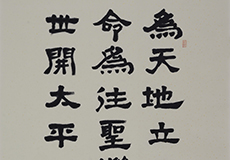 為天地立
命為往聖
世開太平